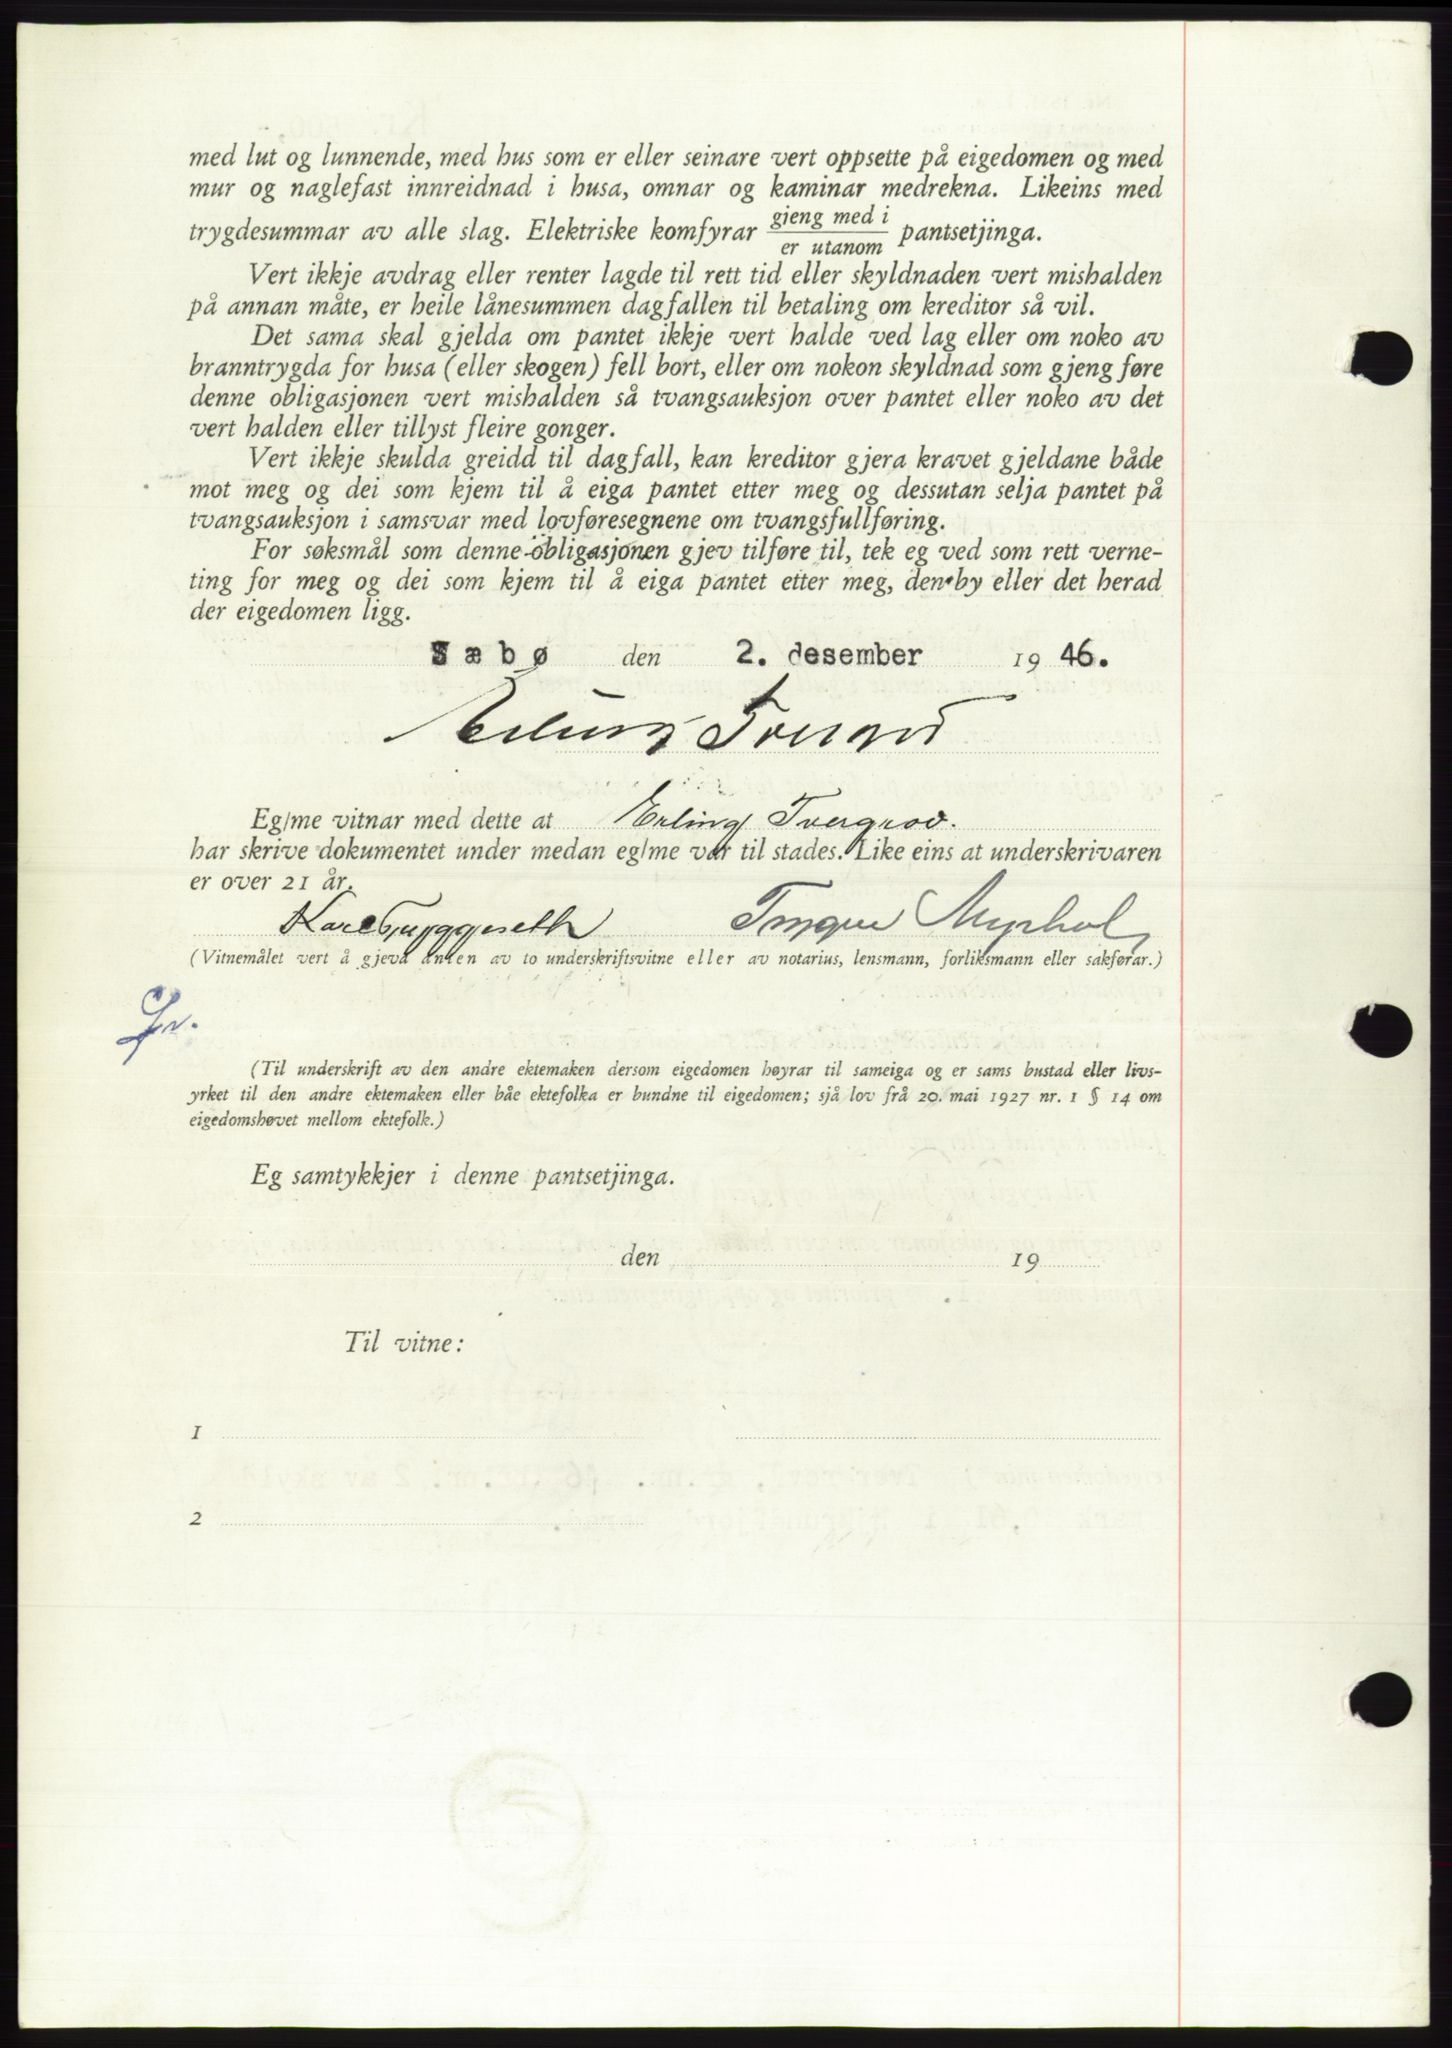 med lut og lunnende, med hus som er eller seinare vert oppsette på eigedomen og med
mur og naglefast innreidnad i husa, omnar og kaminar medrekna. Likeins med
trygdesummar av alle slag. Elektriske komfyrar gjeng med i / er utanom pantsetjinga.
Vert ikkje avdrag eller renter lagde til rett tid eller skyldnaden vert mishalden
på annan måte, er heile lånesummen dagfallen til betaling om kreditor så vil.
Det sama skal gjelda om pantet ikkje vert halde ved lag eller om noko av
branntrygda for husa (eller skogen) fell bort, eller om nokon skyldnad som gjeng føre
denne obligasjonen vert mishalden så tvangsauksjon over pantet eller noko av det
vert halden eller tillyst fleire gonger.
Vert ikkje skulda greidd til dagfall, kan kreditor gjera kravet gjeldane både
mot meg og dei som kjem til å eiga pantet etter meg og dessutan selja pantet på
tvangsauksjon i samsvar med lovføresegnene om tvangsfullføring.
For søksmål som denne obligasjonen gjev tilføre til, tek eg ved som rett verne-
ting for meg og dei som kjem til å eiga pantet etter meg, den by eller det herad
der eigedomen ligg.
Sæbø den 2. desember 19 46.
Erling
Eg/me vitnar med dette at Erling Tvergrov.
har skrive dokumentet under medan eg/me var til stades. Like eins at underskrivaren
er over 21 år.
Kåre Tryggeseth Trygve Myrhol
(Vitnemålet vert å gjeva anten av to underskriftsvitne eller av notarius, lensmann, forliksmann eller sakførar.)
(Til underskrift av den andre ektemaken dersom eigedomen høyrar til sameiga og er sams bustad eller livs-
yrket til den andre ektemaken eller båe ektefolka er bundne til eigedomen; sjå lov frå 20. mai 1927 nr. 1 § 14 om
eigedomshøvet mellom ektefolk.)
Eg samtykkjer i denne pantsetjinga.
den 19
Til vitne:
1
2